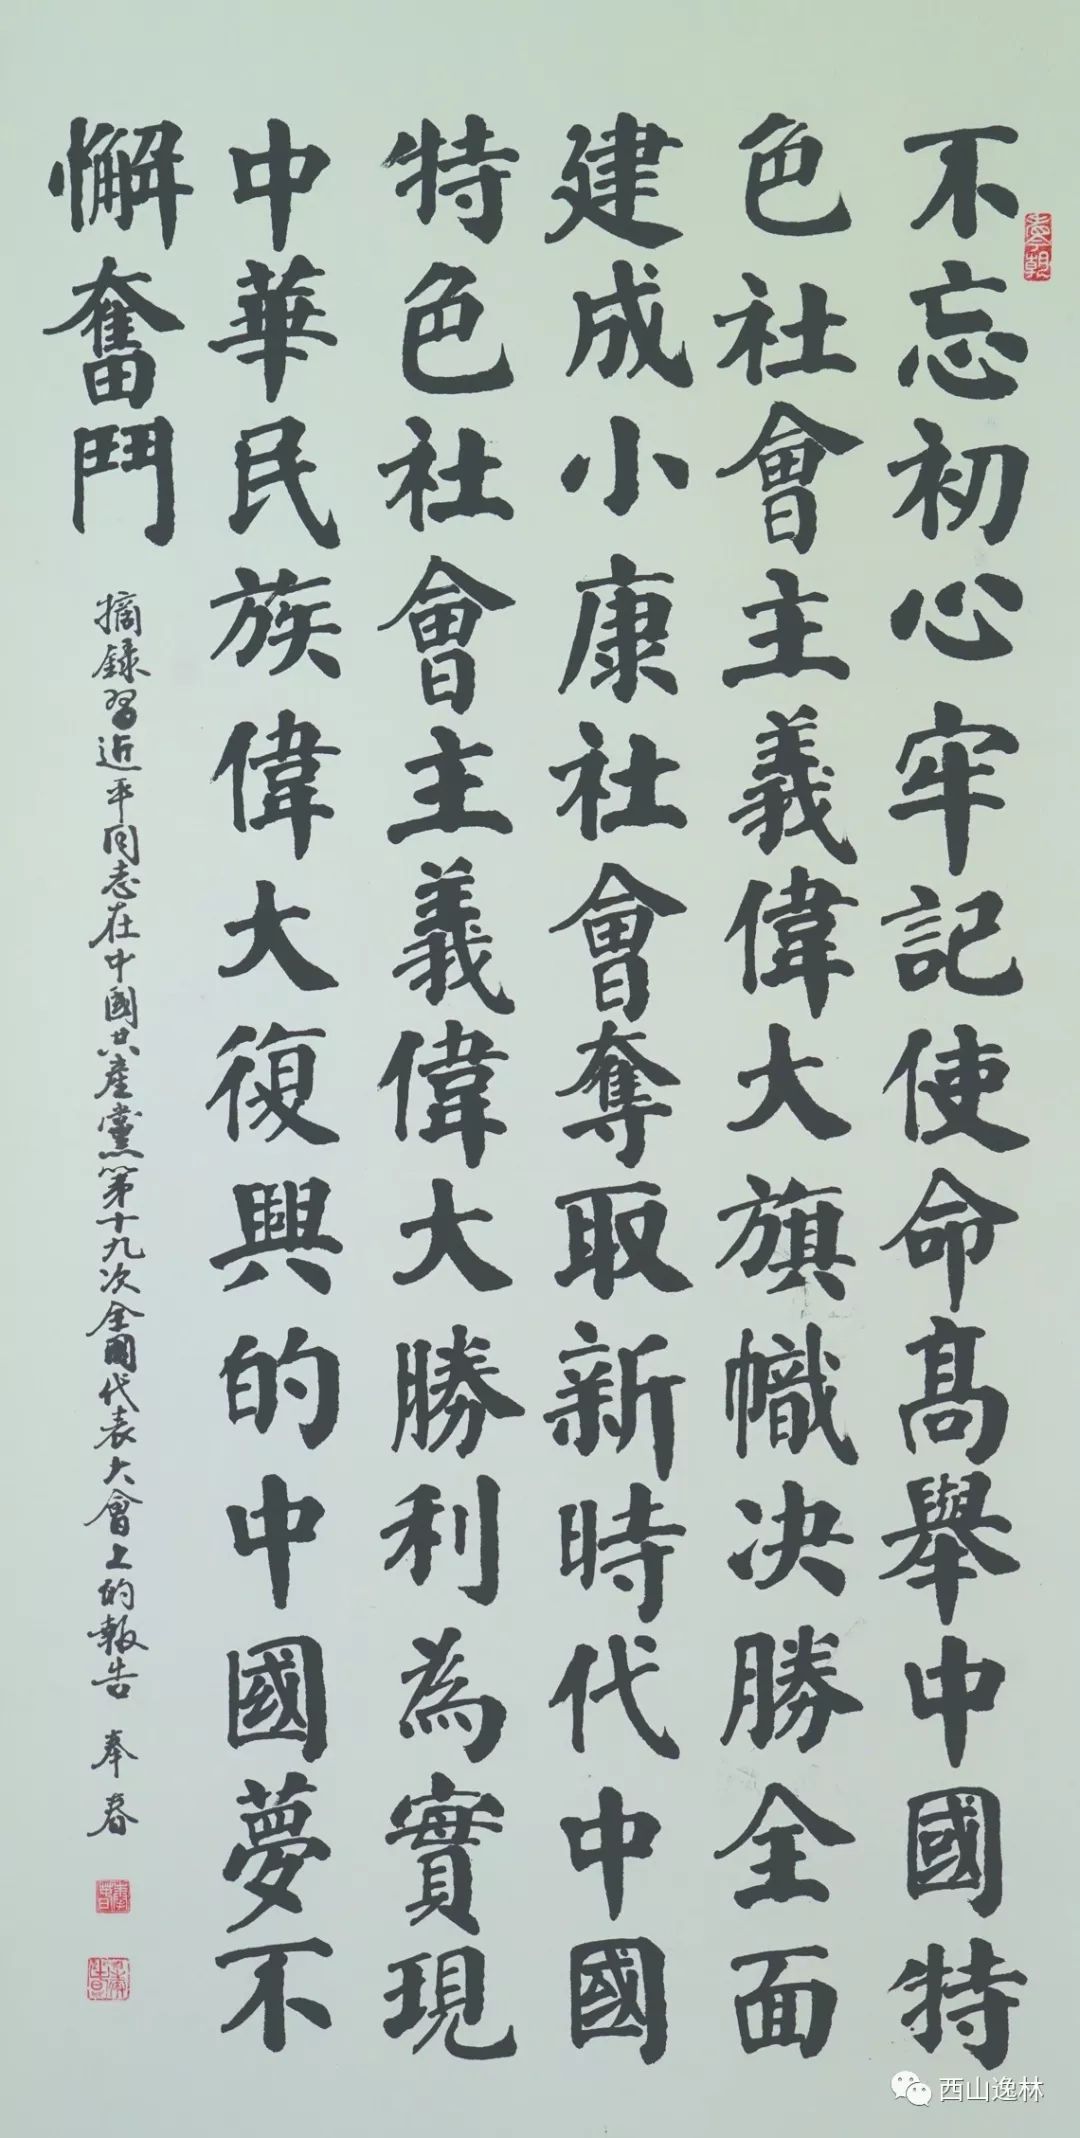 不忘初心牢記使命髙舉中國特
色社會主義偉大旗幟决勝全面
建成小康社會奪取新時代中國
特色社會主義偉大勝利為實現
中華民族偉大復興的中國夢不
懈奮鬥
摘録習近平同志在中國共產黨第十九次全國代表大會上的報告 奉春
西山逸林